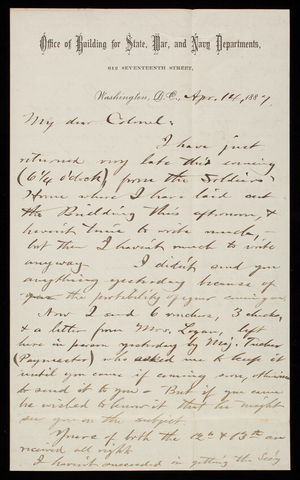 Office of Building for State, War, and Navy Departments,
613 SEVENTEENTH STREET,
Washington, D.C., Apr. 14, 1887
My dear Colonel:
I have just
returned very late this evening
(6 1/4 o'clock) from the Soldiers
Home where I have laid out
the Building this afternoon, &
haven't time to write much, -
but then I haven't much to write
anyway. I didn't send you
anything yesterday because of
the probability of your coming on.
Now I send 6 vouchers, 3 checks,
& a letter from Mrs. Logan, left
here in person yesterday by Maj. Tucker
(Paymaster) who asked me to keep it
until you came if coming soon, otherwise
to send it to you - But if you came
he wished to know it that he might
see you on the subject.
Yours of both the 12th & 13th are
received all right.
I haven't succeeded in getting the Sec'y